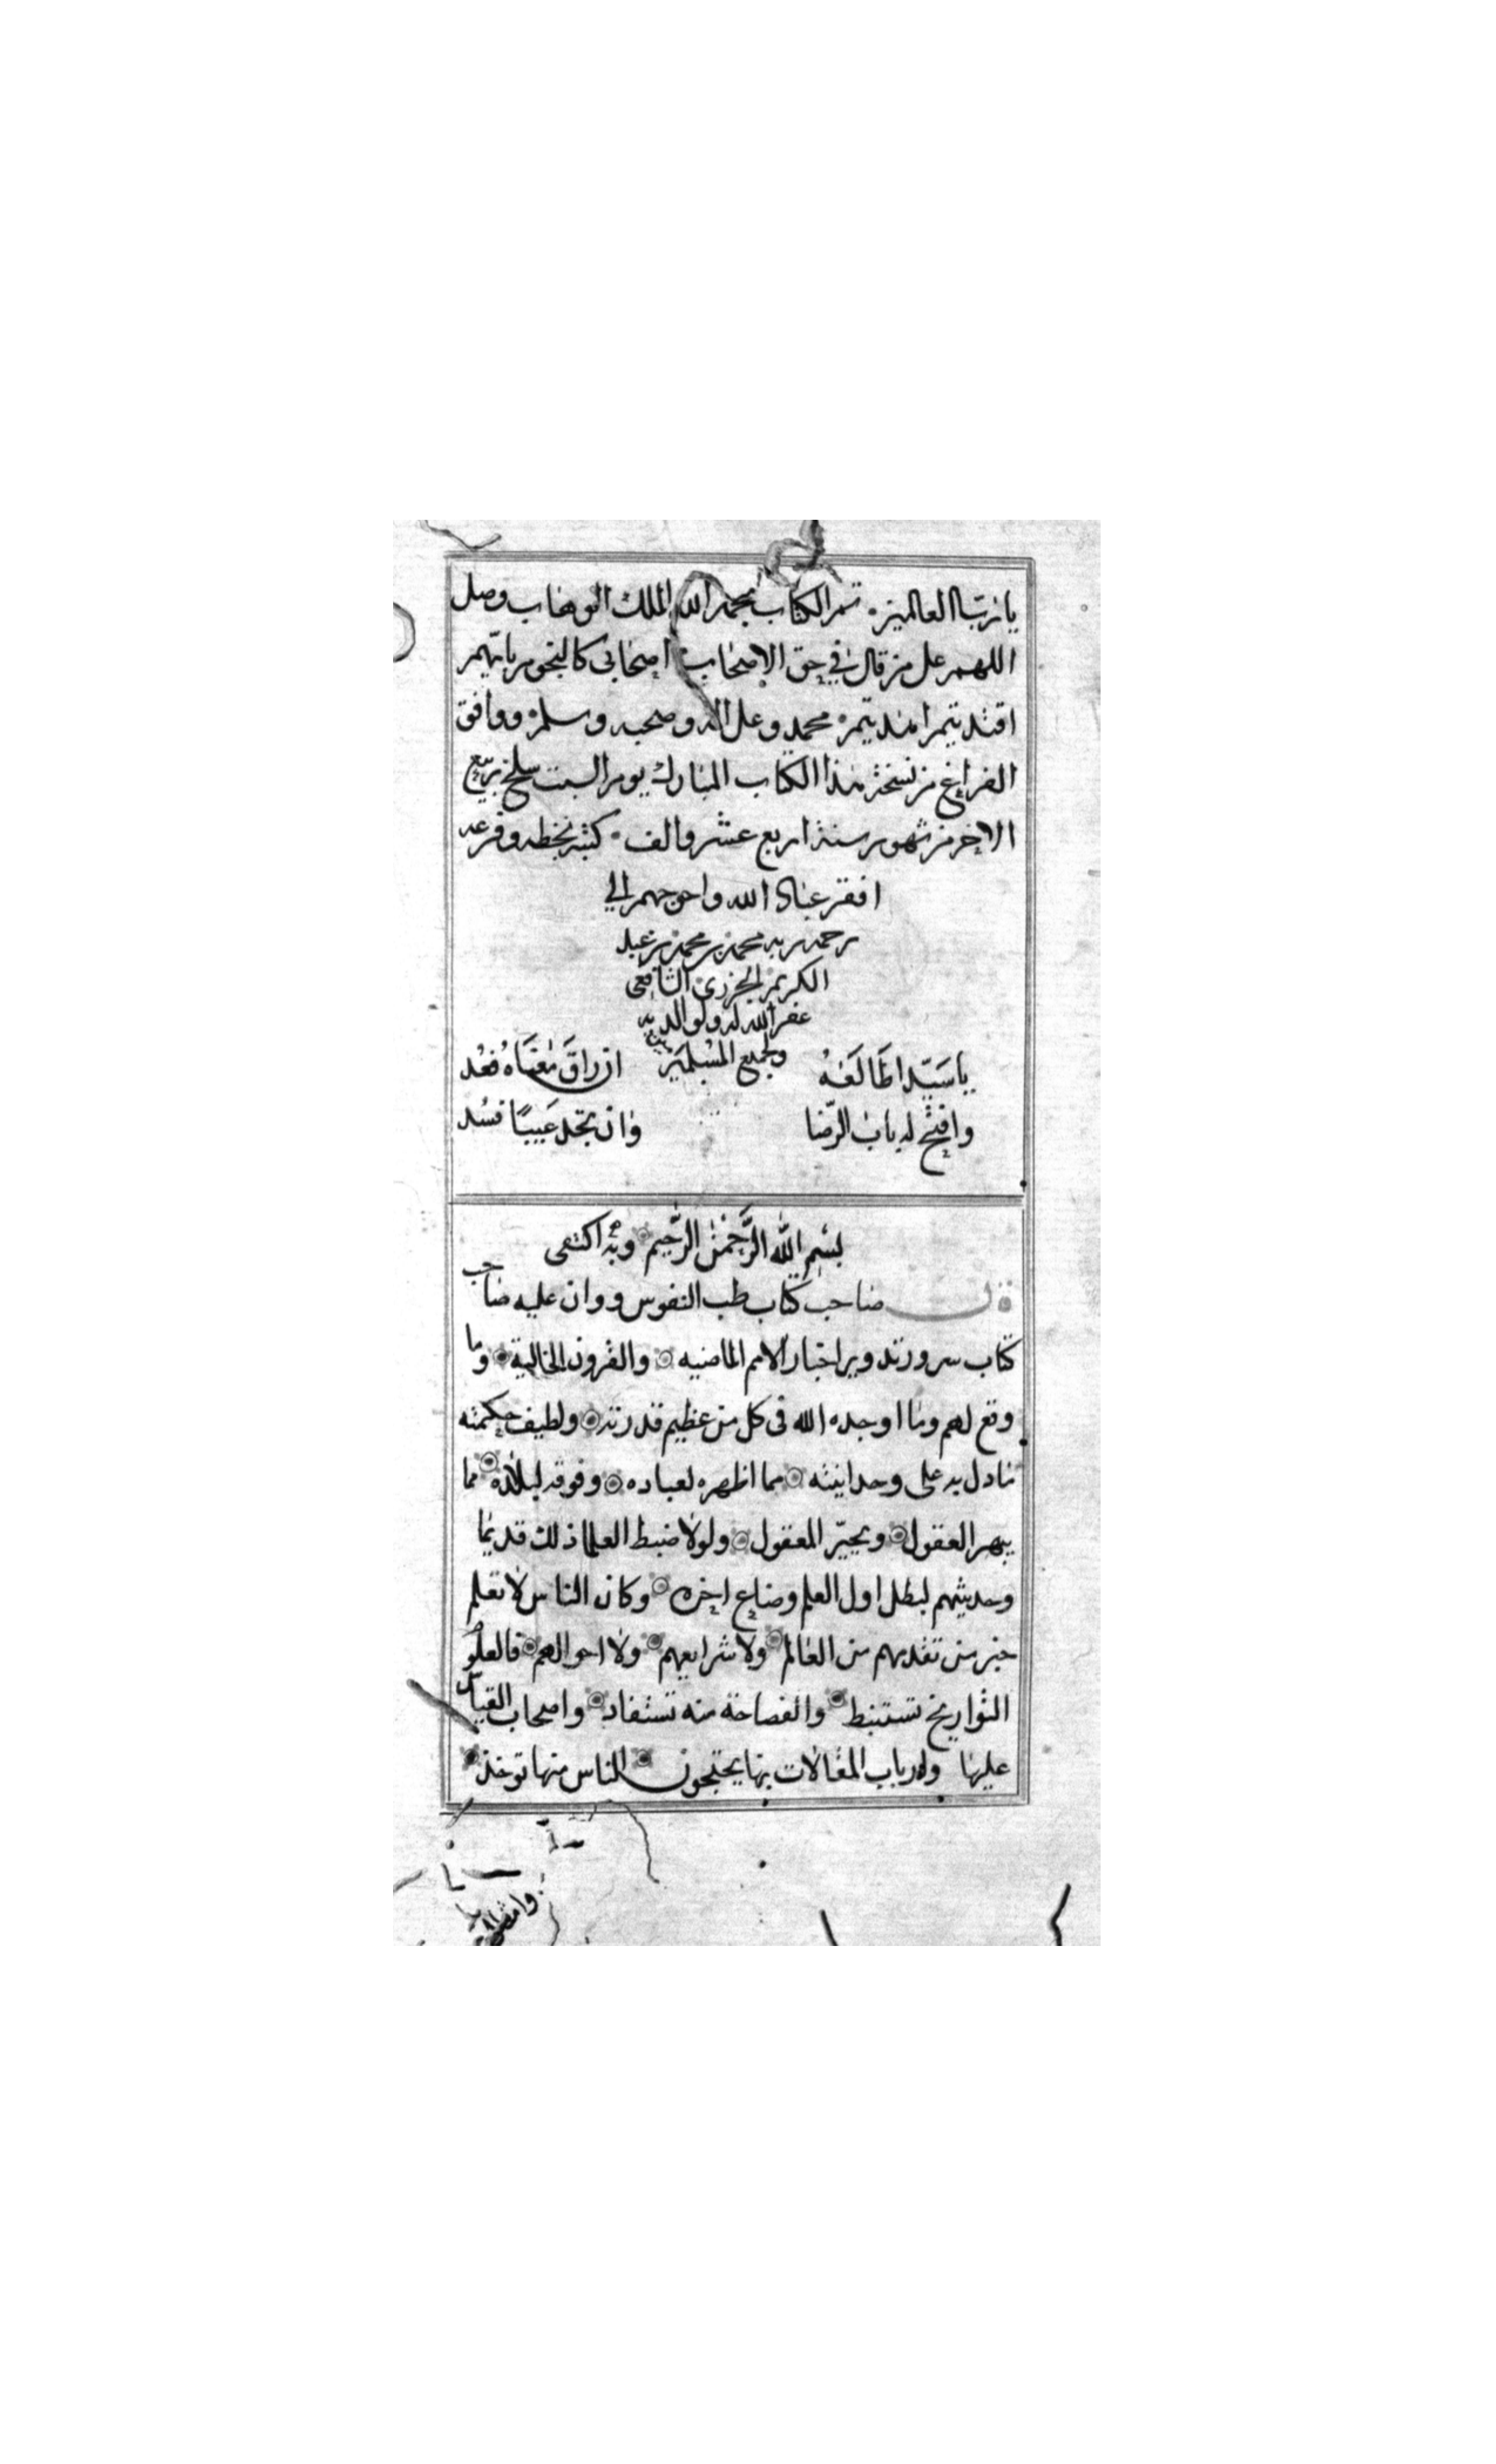 يا رب العالمين. تم الكتاب بحمد الله الملك الوهاب وصل
اللهم على من قال في حق الاصحاب اصحابى كالنجوم بايهم
اقتديتم اهتديتم محمد وعلى اله وصحبه وسلم ووافق
الفراغ من نسخة هذا الكتاب المبارك يوم السبت سلخ ربيع
الاخر من شهور سنة اربع عشر والف. كتبه بخطه
افقر عباد الله واحوجهم الي
رحمة ربه محمد بن محمد بن عبد
الكريم الجزري الشافعى
غفر الله له ولوالديه
ولجميع المسلمين
يا سيدا طالعه ان راق معناه فعد
وافتح له باب الرضا وان تجد عيبا فسد
بسم الله الرحمن الرحيم وبه اكتفى
قال صاحب كتاب طب النفوس ووان عليه صاحب
كتاب سرور تدوير اخبار الامم الماضيه والقرون الخالية وما
وقع لهم وما اوجده الله فى كل من عظيم قدرته ولطيف حكمته
مادل به على وحدانيته مما اظهره لعباده وفوقه لبلاده مما
يبهر العقول ويحير المعقول ولولا ضبط العلما ذلك قديما
وحديثهم لبطل اول العلم وضاع اخره وكان الناس لا تعلم
خبر من تقدمهم من العالم ولا شرايعهم ولا احوالهم فالعلو
التواريخ تستنبط والفصاحة منه تستفاد واصحاب القياس
عليها ولارباب المقالات بها يحتجون الناس منها توخذ